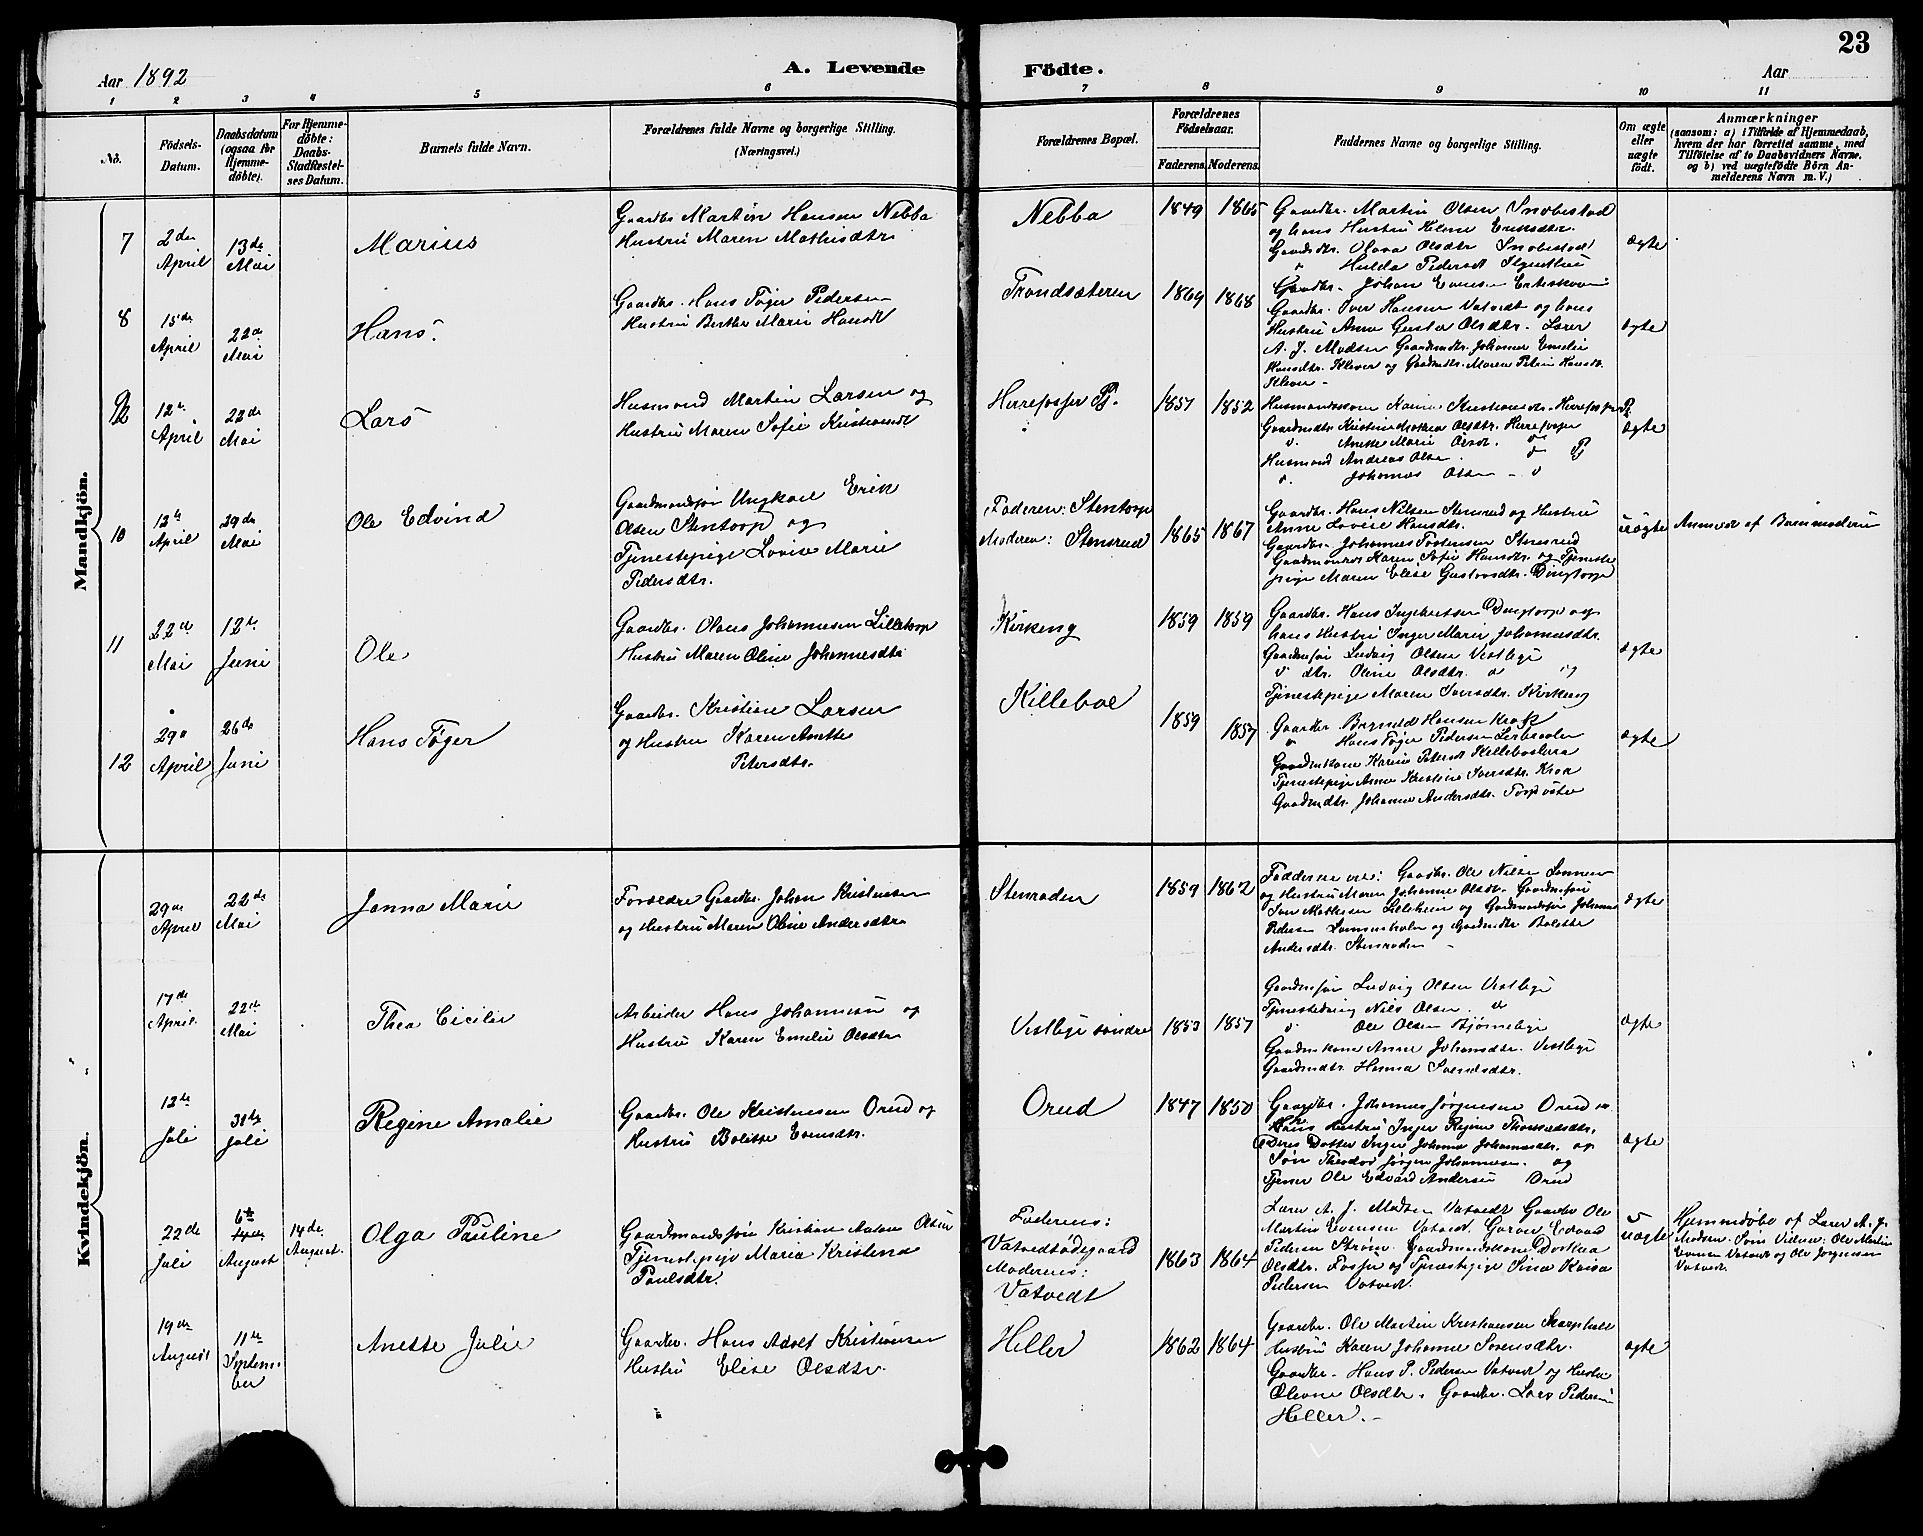 23
Aar 1892
A. Levende Födte.
Aar
1 2 3 4 5 6 7 8 9 10 11
No.
Födsels-Datum.
Daabsdatum (ogsaa for Hjemmedøbte).
For Hjemmedøbte: Daabs-Stadfæstelses Datum.
Barnets fulde Navn.
Forældrenes fulde Navne og borgerlige Stilling.
(Næringsvei.)
Forældrenes Bopæl.
Forældrenes Födselsaar.
Faderens. Moderens.
Faddernes Navne og borgerlige Stilling.
Om ægte eller uægte födt.
Anmærkninger
(saasom: a) i Tilfælde af Hjemmedaab, hvem der har forrettet samme, med Tilföielse af to Daabsvidners Navne, og b) ved uægtefödte Börn Anmelderens Navn m. V.)
Mandkjön.
7
2den April
13de Mai
Marius
Gaardbr. Martin Hansen Nebba
Hustru Maren Mathisdtr
Nebba
1849 1865
Gaardbr. Martin Olsen Snobestad
og hans Hustru Helene Eriksdtr.
Gaardmdtr. Olava Olsdtr Snobestad
" Hulda Pedersdt
ægte
8
15de April
22de Mai
Hans
Gaardbr. Hans Töger Pedersen
Hustru Berthe Marie Hansdt
Trondsæteren
1869 1868
Gaardbr. Johan Evensen
Gaardbr. Iver Hansen Vatvedt og hans
Hustru Anne Gustava Olsdtr. Lærer
A. J. Madsen Gaardmdtr. Johanne Emelie
Hansdtr. Kleven og Gaardmdtr. Maren Petrine Hansdtr.
Kleven
ægte
9
12te April
22de Mai
Lars
Husmand Martin Larsen og
Hustru Maren Sofie Kristiansdt
Herrefosser Pl.
1857 1852
Gaardmdtr Kristine Mathea Olsdtr. Herrefosser
" Anette Marie Olsdt. "
Husmand Andreas Olsen. " Pl
" Johannes Olsen "
ægte
10
12te April
29de Mai
Ole Edvind
Gaardmandssön Ungkarl Erik
Olsen Stentorp og
Tjenestepige Lovise Marie
Pedersdtr.
Faderen: Stentorp
Moderen: Stensrud
1865 1867
Gaardbr. Hans Nilsen Stensrud og Hustru
Anne Lovise Hansdtr.
Gaardbr. Johannes Torstensen Stensrud
Gaardmandsdt Karen Sofie Hansdtr. og Tjeneste
pige Maren Elise Gustavsdtr. Dingtorp
uægte
Anmeldt af Barnemoderen
11
22de Mai
12te Juni
Ole
Gaardbr. Olaus Johannesen Lilletorp
Hustru Maren Oline Johannesdtr
Kirkeng
1859 1859
Gaardbr. Hans Ingebretsen Dingtorp og
hans Hustru Inger Marie Johannesdtr.
Gaardmsön Ludvig Olsen Vestlege
" dtr. Oline Olsdtr. " og
Tjenestepige Maren Iversdtr. Kirkeng
ægte
12
29de April
26de Juni
Hans Töger
Gaardbr. Kristian Larsen
og Hustru Karen Anette
Petersdtr.
Killeboe
1859 1857
Gaardbr. Berntd Hansen Krok
" Hans Töger Pedersen
Gaardmkone Karine Petersdt Killeboslora
Tjenestepige Anne Kristine Iversdtr. Krok
Gaardmdtr. Johanne Andersdtr. Torp
ægte
Kvindekjön.
29de April
22de Mai
Janna Marie
Forældre Gaardbr. Johan Kristensen
og Hustru Maren Oline Andersdtr
Stenraden
1859 1862
Fadderne ere: Gaardbr. Ole Nilsen
og Hustru Maren Johanne Olsdt. Gaardmsön
Iver Mathisen Lileheim og Gaardmandssön Johannes
Pedersen Lommenholm og Gaardmdtr Bolette
Andersdtr. Stenraden
ægte
17de April
22de Mai
Thea Cicilie
Arbeider Hans Johannesen og
Hustru Karen Emelie Olsdtr
Vestlege söndre
1853 1857
Gaardmsön Ludvig Olsen Vestlege
Tjenestedreng Nils Olsen "
" Ole Olsen Bjørnelege
Gaardmkone Anne Johansdtr. Vestlege
Gaardmdtr. Hanna Svensdtr.
ægte
12te Juli
31te Juli
Regine Amalie
Gaardbr. Ole Kristensen Orud og
Hustru Bolette Evensdtr.
Orud
1847 1850
Gaardbr. Johannes Jørgensen Orud
Hans Hustru Inger Regine Thoresdtr.
Deres Dotter Inger Johanne Johannesdtr. og
Sön Theodor Jørgen Johannesen. og
Tjener Ole Edvard Andersen Orud
ægte
22de Juli
6te August
14de August.
Olga Pauline
Gaardmandssön Kristian Anton Olsen
Tjenestepige Maria Kristena
Paulsdtr.
Faderens:
Vatvedtödegaard
Moderens:
Vatvedt
1863 1864
Lærer A. J. Madsen Vatvedt Gaardbr Ole
Martin Evensen Vatvedt. Garver Edvard
Pedersen Ström. Gaardmandskone Dorthea
Olsdtr. Fosser og Tjenestepige Sina Kaisa
Pedersen Vatvedt.
uægte
Hjemmedøbt af Lærer A. J.
Madsen. Som Vidner: Ole Martin
Evensen Vatvedt og Ole Jørgensen
Vatvedt.
19de August
11te September
Anette Julie
Gaardbr. Hans Adolf Kristiansen
Hustru Elise Olsdtr.
Heller
1862 1864
Gaardbr. Ole Martin Kristiansen
Hustru Karen Johanne Sørensdtr.
Gaardbr. Hans P. Pedersen Vatvedt og Hustru
Olevne Olsdtr. Gaardbr. Lars Pedersen
Heller.
ægte